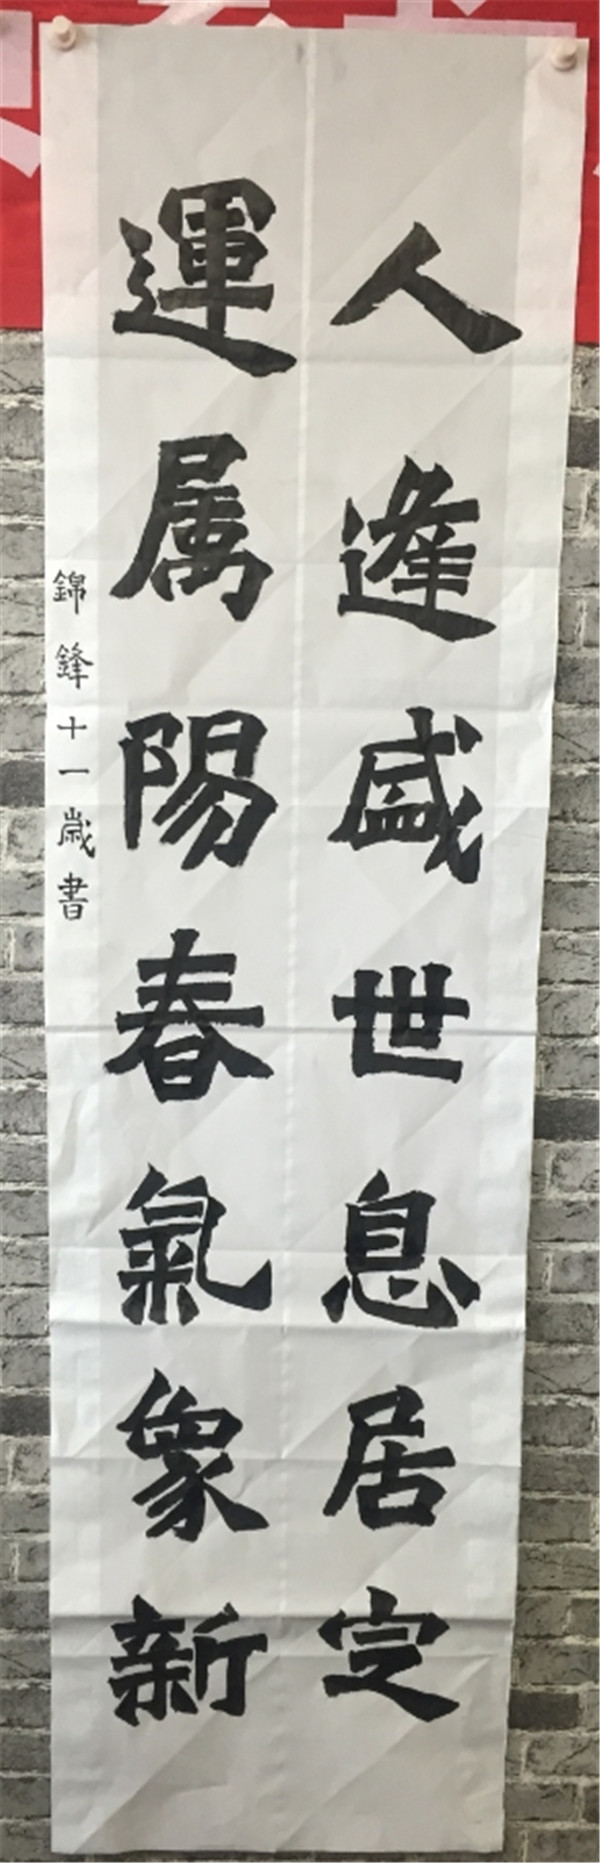 人逢盛世息居定
運属陽春氣象新
錦鋒十一歲書